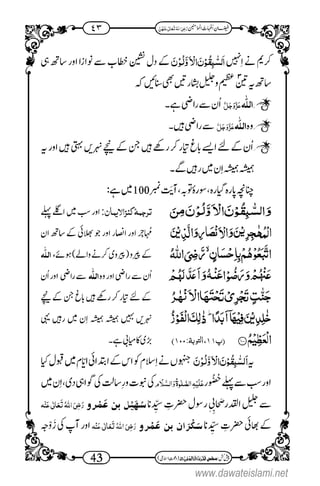 ٤٣
کریم نے انہیں اَلسّٰبِقُوْنَ الْاَوَّلُوْنَ کے دل نشین خطاب سے نوازا اور ساتھ ہی
ساتھ یہ تین عظیم و جلیل بشارتیں بھی سنائیں کہ
اللہ عَزَّوَجَلَّ اُن سے راضی ہے۔
وہ اللہ عَزَّوَجَلَّ سے راضی ہیں۔
اُن کے لئے ایسے باغات تیار کر رکھے ہیں جن کے نیچے نہریں بہتی ہیں اور یہ
ہمیشہ ہمیشہ اِن میں رہیں گے۔
چنانچہ پارہ گیارہ، سورۂ توبہ، آیت نمبر 100 میں ہے:
وَالسّٰبِقُوْنَ الْاَوَّلُوْنَ مِنَ
الْمُهٰجِرِیْنَ وَالْاَنْصَارِ وَالَّذِیْنَ
اتَّبَعُوْهُمْ بِاِحْسَانٍ ۙ رَّضِیَ اللّٰهُ
عَنْهُمْ وَرَضُوْا عَنْهُ وَاَعَدَّ لَهُمْ
جَنّٰتٍ تَجْرِیْ تَحْتَهَا الْاَنْهٰرُ
خٰلِدِیْنَ فِیْهَاۤ اَبَدًا ؕ ذٰلِكَ الْفَوْزُ
الْعَظِیْمُ (پ۱۱، التوبۃ: ۱۰۰)
ترجمۂ کنزالایمان: اور سب میں اگلے پہلے
مُہاجر اور انصار اور جو بھلائی کے ساتھ ان
کے پیرو (پیروی کرنے والے) ہوئے، اللہ
اُن سے راضی اور وہ اللہ سے راضی اور اُن
کے لئے تیار کر رکھے ہیں باغ جن کے نیچے
نہریں بہیں ہمیشہ ہمیشہ اِن میں رہیں یہی
بڑی کامیابی ہے۔
یہ اَلسّٰبِقُوْنَ الْاَوَّلُوْنَ جنہوں نے اِسلام کو اس کے ابتدائی ایّام میں قبول کیا
اور سب سے پہلے حُضُور عَلَیْهِ الصَّلٰوةُ وَالسَّلَام کی نبوت و رسالت کی گواہی دی، اِن میں
سے جلیل القدر صحابیِ رسول حضرتِ سیِّدنا سُہَیْل بن عَمْرو رَضِیَ اللهُ تَعَالٰی عَنْهُ
کے بھائی حضرتِ سیِّدنا سَکْرَان بن عَمْرو رَضِیَ اللهُ تَعَالٰی عَنْهُ اور آپ کی زَوْجَہ
43
www.dawateislami.net